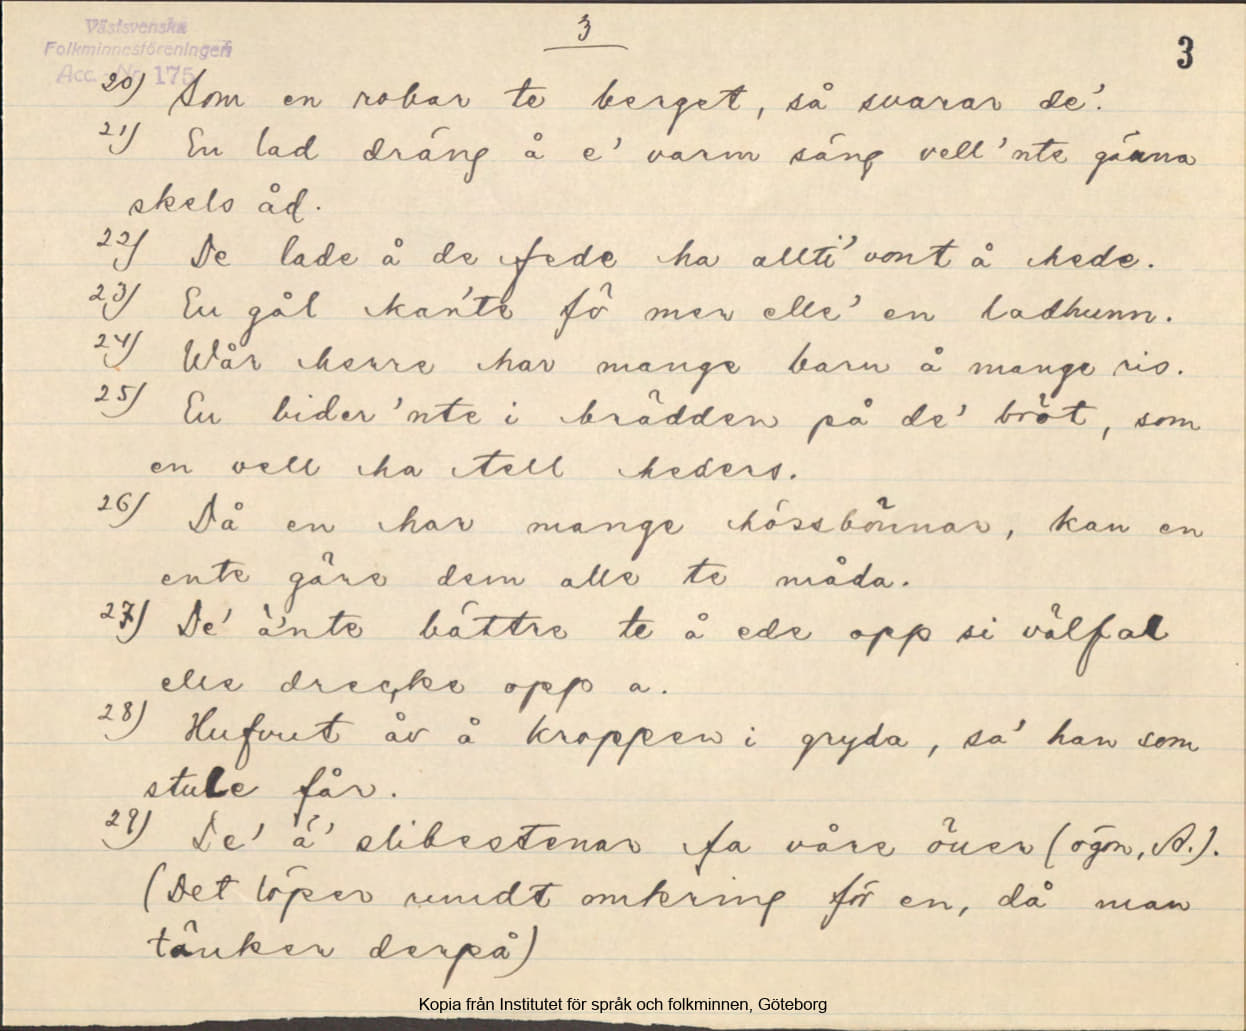 Västsvenska
Folkminnesföreningen
Acc. No 175
3
3
20) Som en robar te berget, så svarar de'.
21) En lad dräng å e' varm säng vell'nte gänna
skels åd.
22) De lade å de fede ha allti' vont å hede.
23) En gål kan'te fö mer elle' en ladhunn.
24) Wår herre har mange barn å mange ris.
25) En bider'nte i brädden på de' bröt, som
en vell ha tell heders.
26) Då en har mange hössbönnar, kan en
ente göre dem alle te måda.
27) De' ä'nte bättre te å ede opp si välfal
elle drecke opp a.
28) Hufvut åv å kroppen i gryda, sa' han som
stule får.
29) De' ä' slibestenar fa våre öuer (ögon, A.).
(Det löper rundt omkring för en, då man
tänker derpå)
Kopia från Institutet för språk och folkminnen, Göteborg